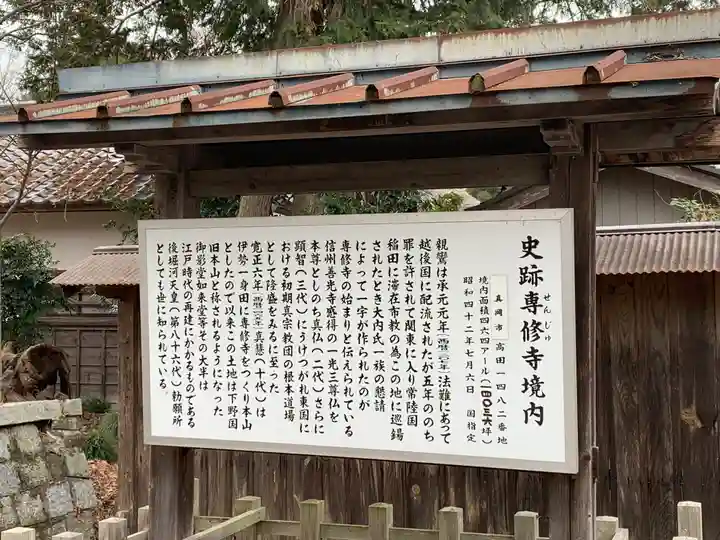 史跡専修寺境内
せんじゅ
真岡市 高田一四八二番地
境内面積四六四アール(一四〇三六坪)
昭和四十二年七月六日 国指定
親鸞は承元元年(西暦一二〇七年)法難にあって
越後国に配流されたが五年ののち
罪を許されて関東に入り常陸国
稲田に滞在布教の為この地に巡錫
されたとき大内氏一族の懇請
によって一宇が作られたのが
専修寺の始まりと伝えられている
信州善光寺感得の一光三尊仏を
本尊としのち真仏(二代)さらに
顕智(三代)にうけつがれ東国に
おける初期真宗教団の根本道場
として隆盛をみるに至った
寛正六年(西暦一四六五年)真慧(十代)は
伊勢一身田に専修寺をつくり本山
としたので以来この土地は下野国
旧本山と称されるようになった
御影堂如来堂等その大半は
江戸時代の再建にかかるものである
後堀河天皇(第八十六代)勅願所
としても世に知られている